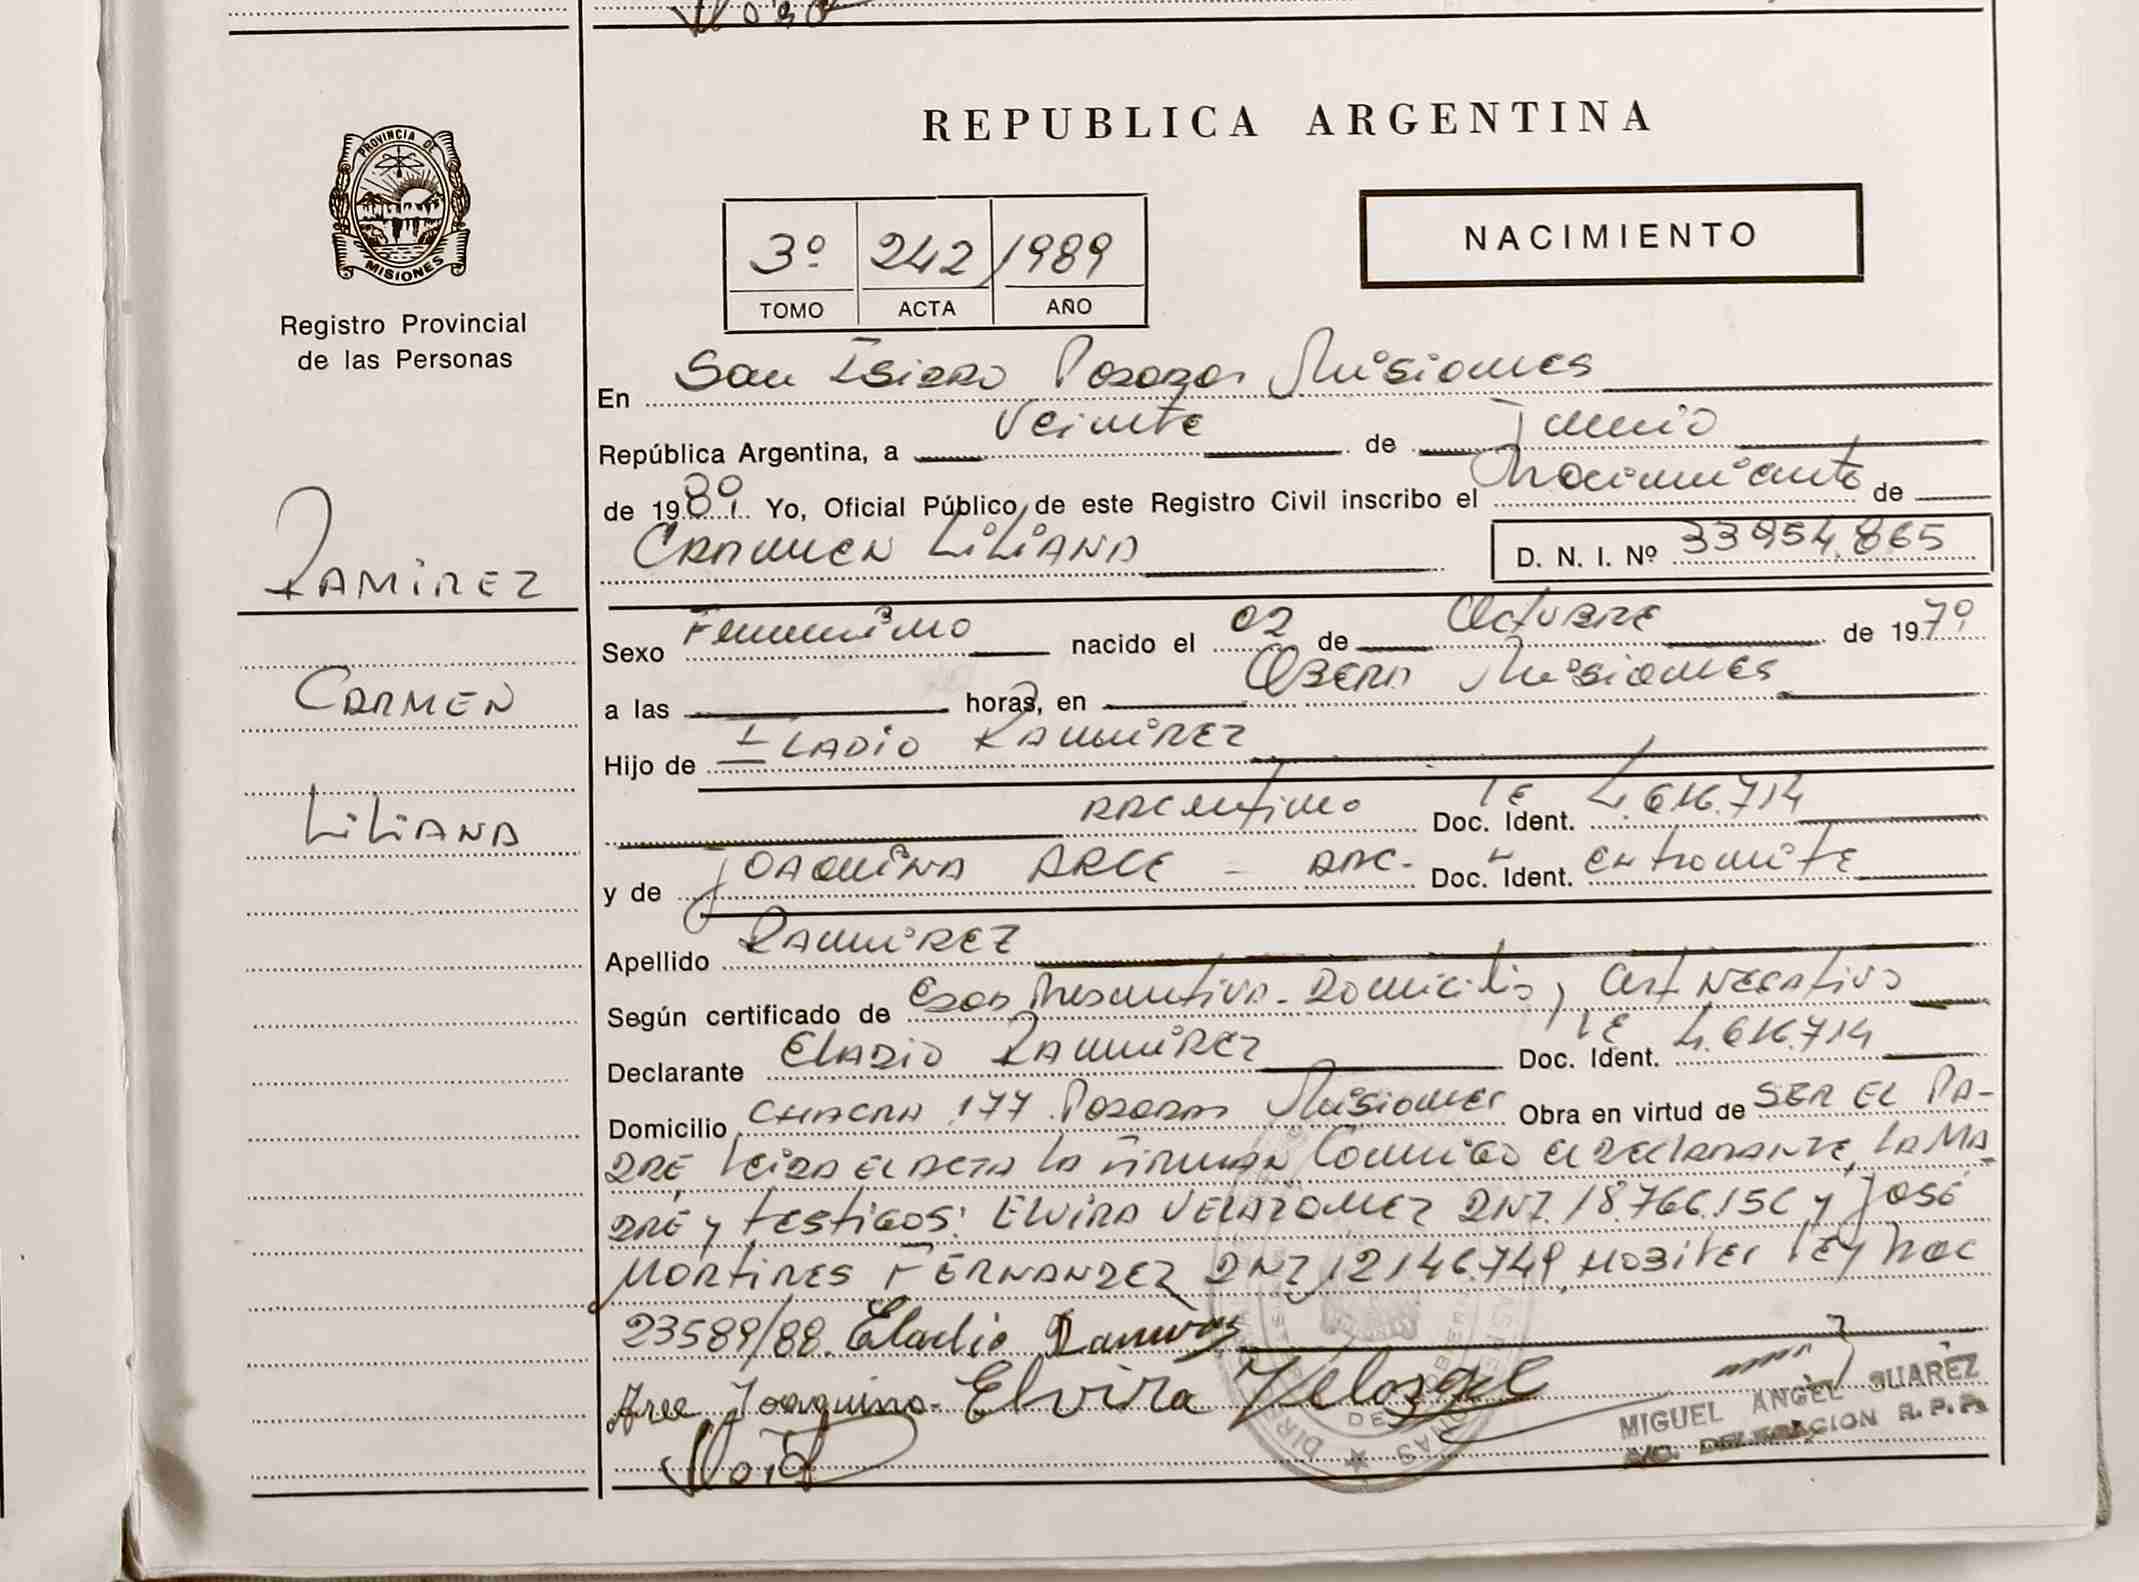 REPUBLICA ARGENTINA
PROVINCIA DE
MISIONES
Registro Provincial
de las Personas
3º 242 1989
TOMO ACTA AÑO
NACIMIENTO
En San Isidro Posadas Misiones
República Argentina, a Veinte de Junio
de 1989. Yo, Oficial Público de este Registro Civil inscribo el Nacimiento de
CARMEN LILIANA D. N. I. Nº 33954.865
RAMIREZ
CARMEN
LILIANA
Sexo Femenino nacido el 02 de Octubre de 1979
a las horas, en OBERA Misiones
Hijo de ELADIO RAMIREZ
ARGENTINO Doc. Ident. LE 4.616.714
y de JOAQUINA ARCE - ARG- Doc. Ident. en tramite
Apellido RAMIREZ
Según certificado de EDAD Presuntiva - Domicilio, Cert NEGATIVO
Declarante Eladio RAMIREZ Doc. Ident. LE 4.616.714
Domicilio CHACRA 177 Posadas Misiones Obra en virtud de SER EL PA-
DRE Leida EL ACTA LA FIRMAN Conmigo el DECLARANTE, LA MA-
DRE y testigos: ELVIRA VELAZQUEZ DNI. 18.766.156 y JOSÉ
MARTIRES FERNANDEZ DNI 12146.749, LEY Nac
23589/88. Eladio Ramires
Arce Joaquina - Elvira
MIGUEL ANGEL SUAREZ
DELEGACION R.P.P.